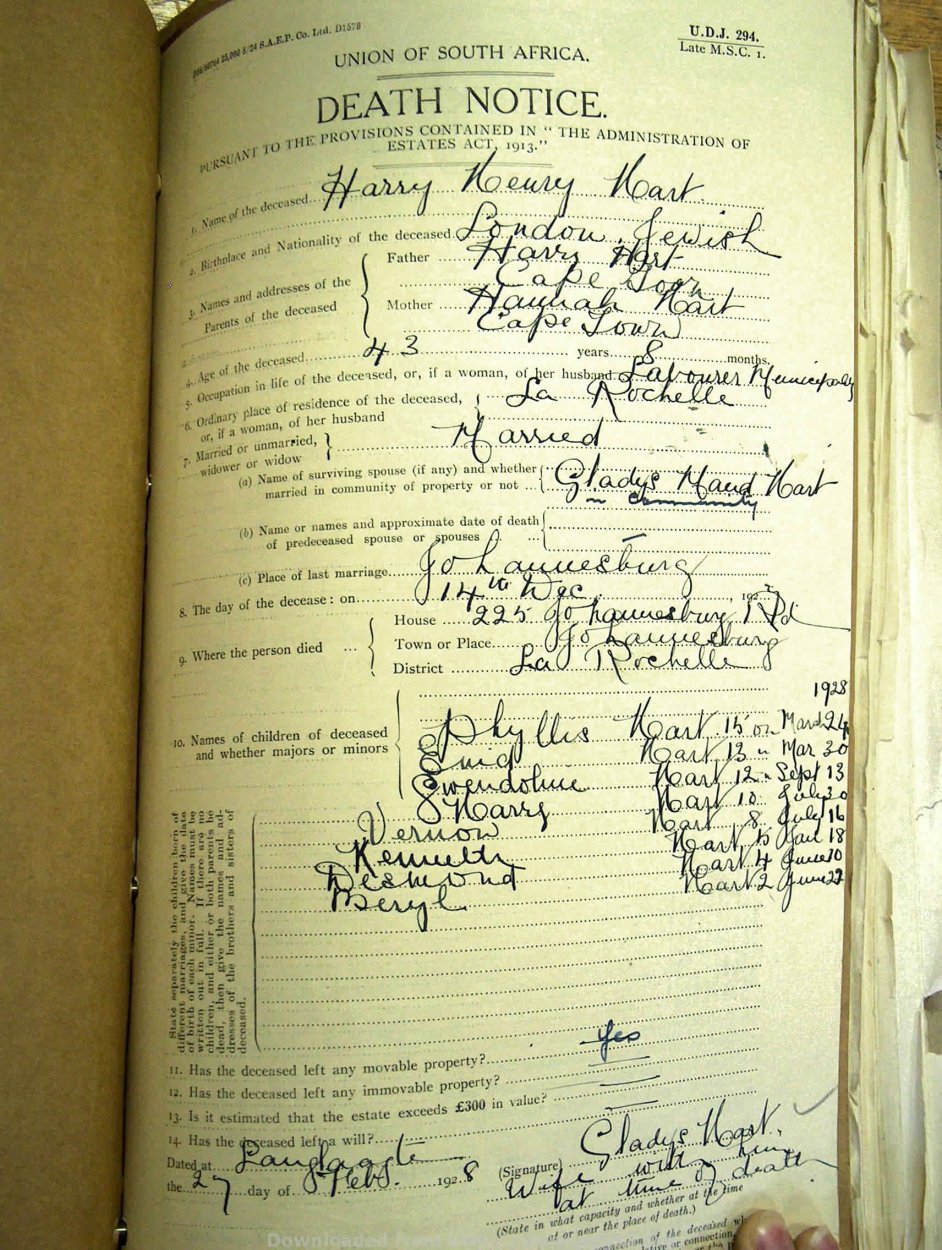 25,000 6/24 S.A.E.P. Co. Ltd. D1578
U.D.J. 294.
Late M.S.C. 1.
UNION OF SOUTH AFRICA.
DEATH NOTICE.
PURSUANT TO THE PROVISIONS CONTAINED IN "THE ADMINISTRATION OF
ESTATES ACT, 1913."
1. Name of the deceased Harry Henry Hart.
2. Birthplace and Nationality of the deceased London. Jewish
3. Names and addresses of the Parents of the deceased
Father Harry Hart
Cape Town
Mother Hannah Hart
Cape Town
4. Age of the deceased 43 years 8 months.
5. Occupation in life of the deceased, or, if a woman, of her husband Labourer Municipality
6. Ordinary place of residence of the deceased, or, if a woman, of her husband La Rochelle
7. Married or unmarried, widower or widow Married
(a) Name of surviving spouse (if any) and whether married in community of property or not Gladys Maud Hart
in community
(b) Name or names and approximate date of death of predeceased spouse or spouses —
(c) Place of last marriage Johannesburg
8. The day of the decease: on 14th Dec. 1927
9. Where the person died ...
House 225 Johannesburg Rd
Town or Place Johannesburg
District La Rochelle
1928
10. Names of children of deceased and whether majors or minors
Phyllis Hart 15 on March 24
Enid Hart 13 " Mar 30
Gwendoline Hart 12 " Sept 13
Harry Hart 10 July 30
Vernon Hart 8 July 16
Kenneth Hart 5 Jan 18
Desmond Hart 4 June 10
Beryl Hart 2 June 22
State separately the children born of
different marriages, and give the date
of birth of each minor. Names must be
written out in full. If there are no
children, and either or both parents be
dead, then give the names and ad-
dresses of the brothers and sisters of
deceased.
11. Has the deceased left any movable property? Yes
12. Has the deceased left any immovable property? —
13. Is it estimated that the estate exceeds £300 in value? —
14. Has the deceased left a will? —
Dated at Langlaagte
the 27 day of Feb. 1928
(Signature) Gladys Hart.
Wife with him
at time of death
(State in what capacity and whether at the time
at or near the place of death.)
connection of the deceased
Downloaded from